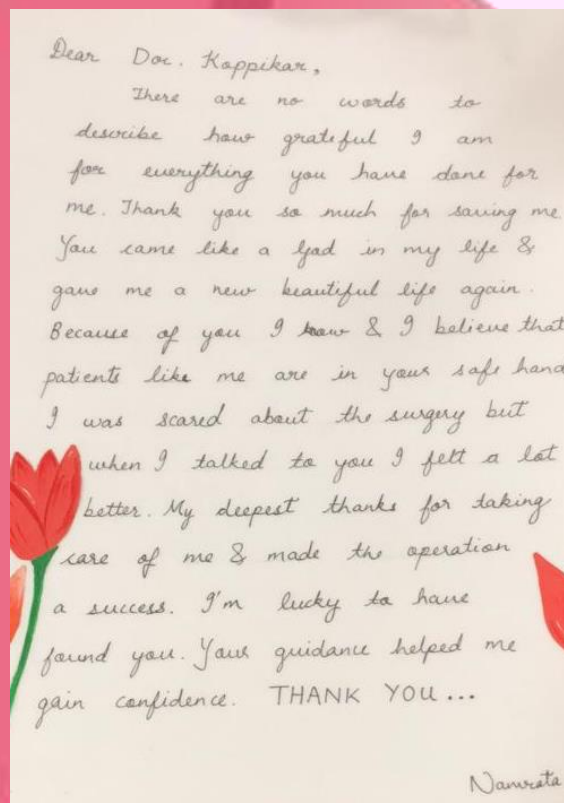 Dear Doc. Koppikar,
There are no words to
describe how grateful I am
for everything you have done for
me. Thank you so much for saving me
You came like a God in my life &
gave me a new beautiful life again.
Because of you I know & I believe that
patients like me are in your safe hand
I was scared about the surgery but
when I talked to you I felt a lot
better. My deepest thanks for taking
care of me & made the operation
a success. I'm lucky to have
found you. Your guidance helped me
gain confidence. THANK YOU...
Namrata